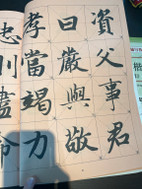 資父事君
曰嚴與敬
孝當竭力
忠則盡命
楷